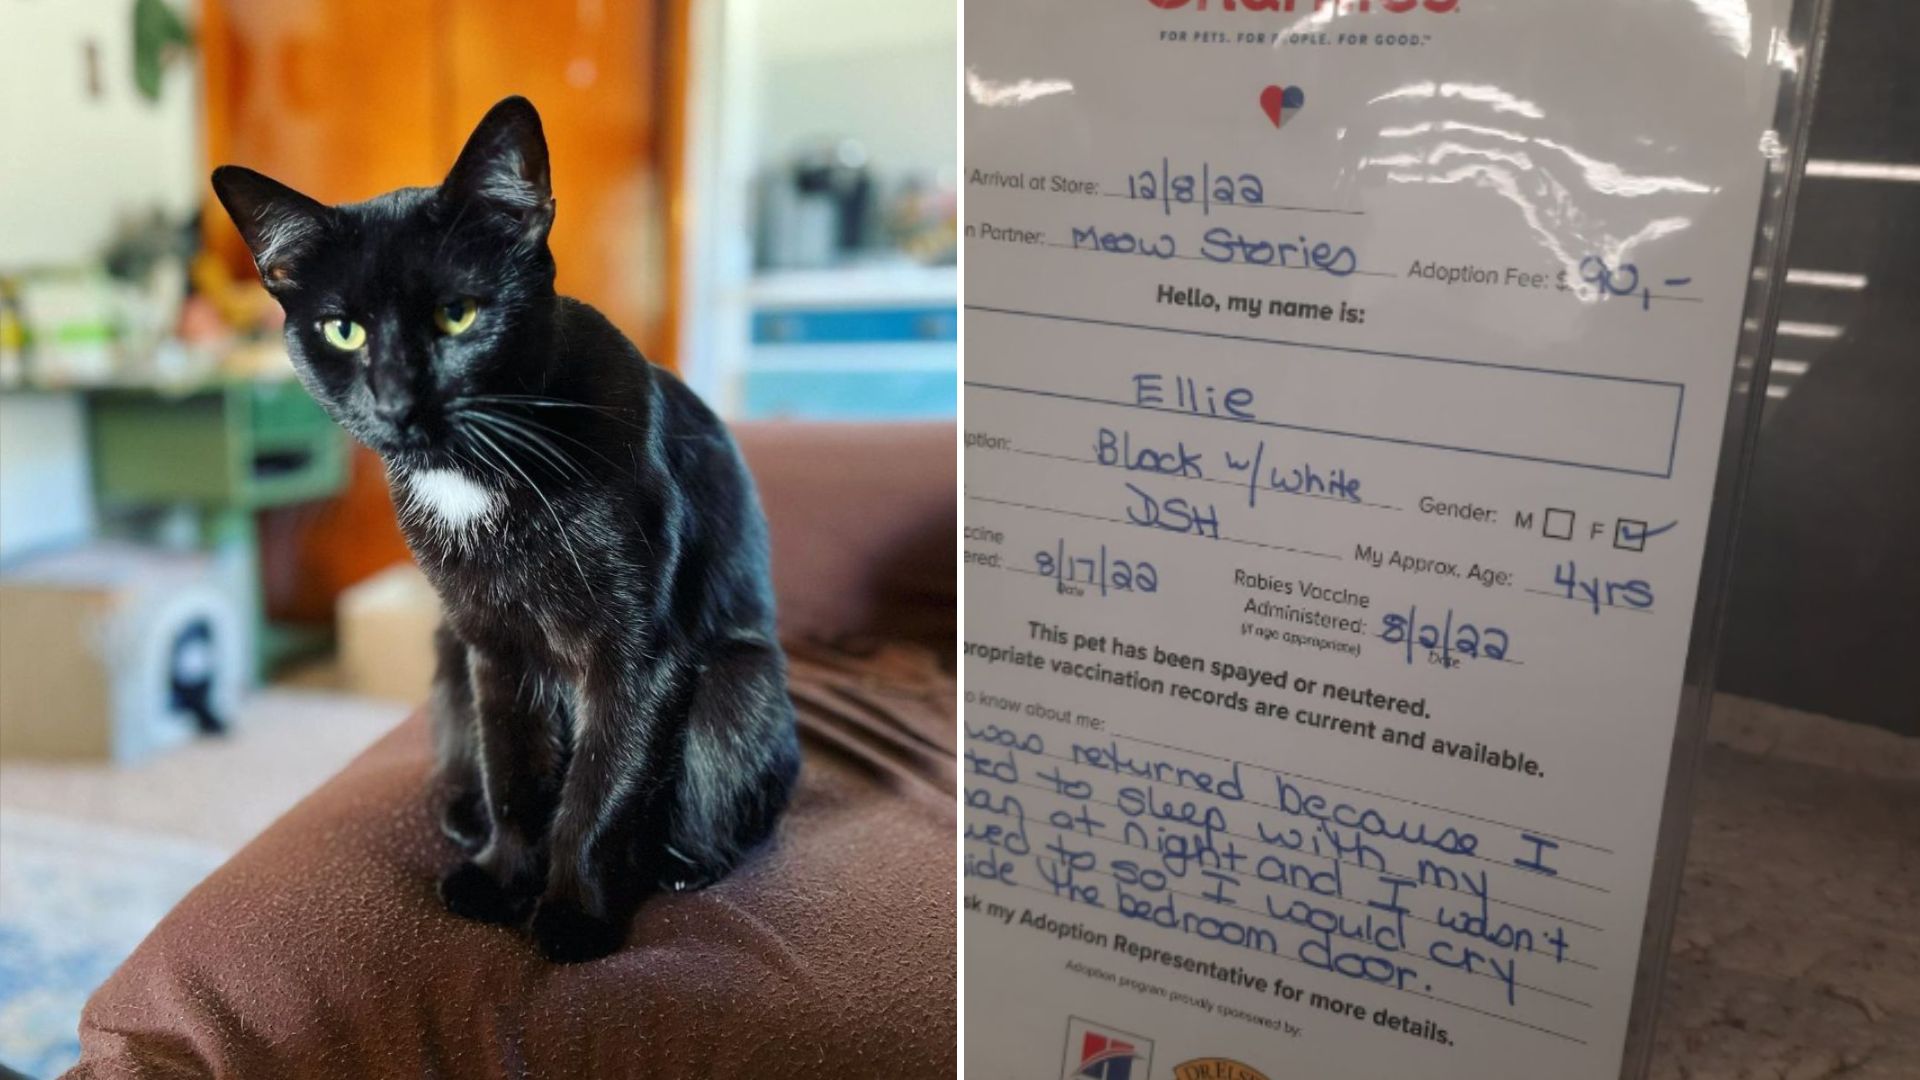 FOR PETS. FOR PEOPLE. FOR GOOD.™
Arrival at Store: 12/8/22
n Partner: Meow Stories Adoption Fee: $ 90,-
Hello, my name is:
Ellie
ption: Black w/ white Gender: M F
DSH My Approx. Age: 4yrs
ccine
ered: 8/17/22 Rabies Vaccine
Administered: 8/2/22
(if age appropriate)
Date Date
This pet has been spayed or neutered.
propriate vaccination records are current and available.
o know about me:
was returned because I
ted to sleep with my
an at night and I wasn't
wed to so I would cry
side the bedroom door.
sk my Adoption Representative for more details.
Adoption program proudly sponsored by:
DR.ELSE